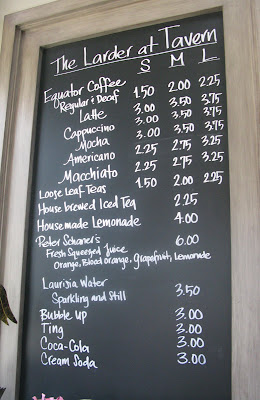 The Larder at Tavern
S M L
Equator Coffee 1.50 2.00 2.25
Regular & Decaf
Latte 3.00 3.50 3.75
Cappuccino 3.00 3.50 3.75
Mocha 3.00 3.50 3.75
Americano 2.25 2.75 3.25
Macchiato 2.25 2.75 3.25
Loose Leaf Teas 1.50 2.00 2.25
House brewed Iced Tea 2.25
Housemade Lemonade 4.00
Peter Schaner's 6.00
Fresh Squeezed Juice
Orange, Blood orange, Grapefruit, Lemonade
Laurisia Water
Sparkling and Still 3.50
Bubble Up 3.00
Ting 3.00
Coca-Cola 3.00
Cream Soda 3.00